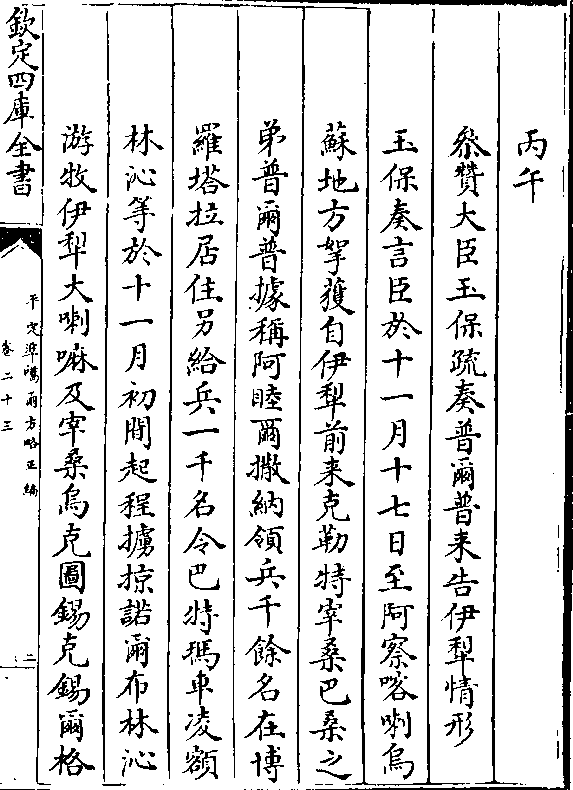 丙午
叅贊大臣玉保疏奏普爾普来告伊犁情形
玉保奏言臣於十一月十七日至阿察喀喇烏
蘇地方拏獲自伊犁前来克勒特宰桑巴桑之
弟普爾普據稱阿睦爾撒納領兵千餘名在博
羅塔拉居住另給兵一千名令巴特瑪車凌額
林沁等於十一月初間起程擄掠諾爾布林沁
游牧伊犁大喇嘛及宰桑烏克圖錫克錫爾格
欽定四庫全書
平定準噶爾方略正編
卷二十三
二